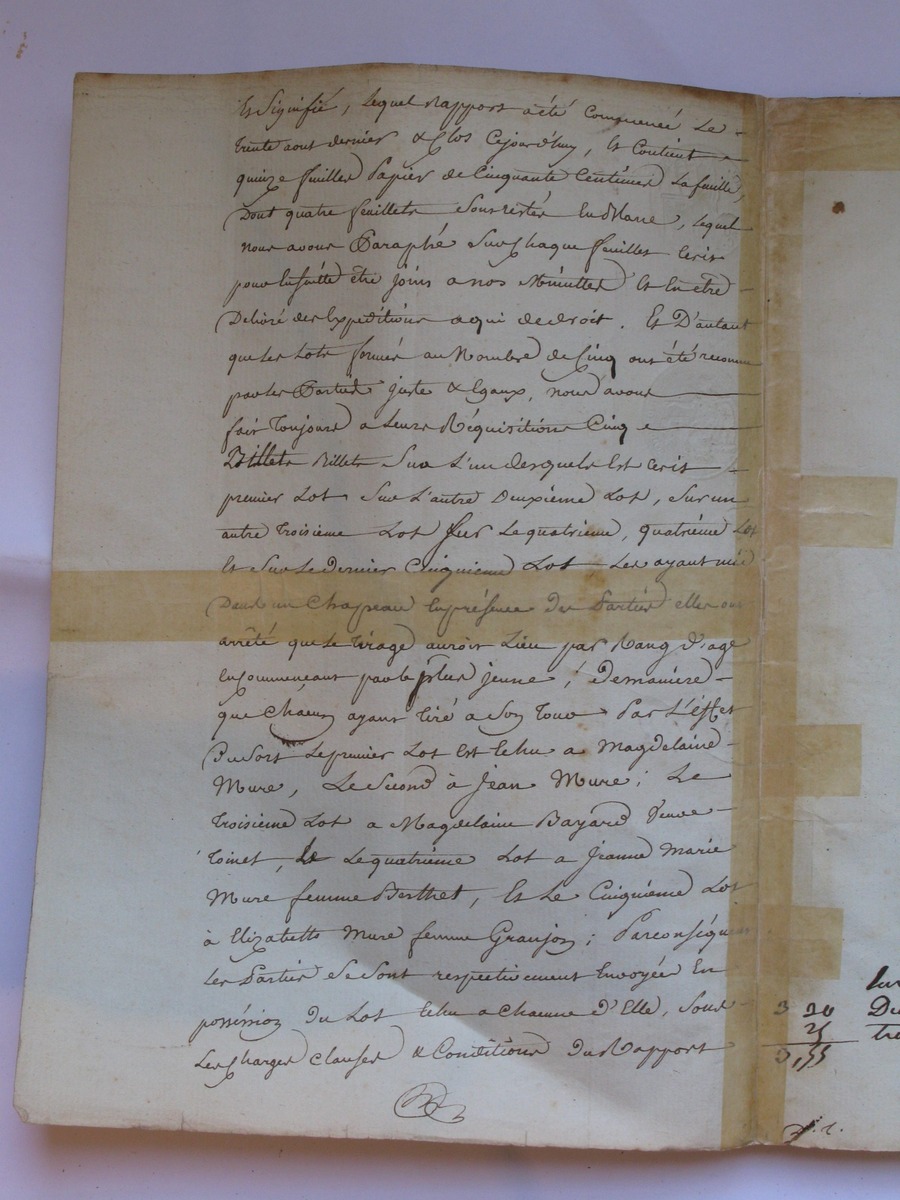 Et Signifié, Lequel Rapport a été Commencé Le
trente aout dernier & Clos Cejourd'huy, Et Contient
quinze feuilles Papier de Cinquante Centimes La feuille,
Dont quatre feuillets Sont restés En Blanc, Lequel
nous avons Paraphé Sur Chaque feuillet Ecrit
pour Ensuitte être joins a nos Minuttes Et En être
Delivré des Expeditions a qui de droit. Et D'autant
que Les Lots formés au Nombre de Cinq ont été reconnu
par les Parties juste & Egaux, nous avons
fait Toujours a Leurs Réquisitions Cinq
Billets Billets Sur L'un desquels Est Ecrit
premier Lot Sur L'autre Deuxième Lot, Sur un
autre Troisième Lot Sur Le quatrieme, quatrième Lot
Et Sur Le Dernier Cinquieme Lot Les ayant mis
Dans un Chapeau En présence Des Parties elles ont
arrêté que Le Tirage auroit Lieu par Rang d'age
En Commencant par le plus jeune ; De maniere
que Chacun ayant Tiré a Son Tour Par L'Effet
Du Sort Le premier Lot Est Echu a Magdelaine
Mure, Le Second à Jean Mure ; Le
Troisième Lot a Magdelaine Bayard Veuve
Toinet, Le quatrième Lot a Jeanne Marie
Mure femme Berthet, Et Le Cinquième Lot
à Elizabette Mure femme Granjon ; Par conséquent
Les Parties Se Sont respectivement Envoyée En
posséssion Du Lot Echu a Chacune d'Elle, Sous
Les Charges Clauses & Conditions Du Rapport
3 30
25
3,55
Du